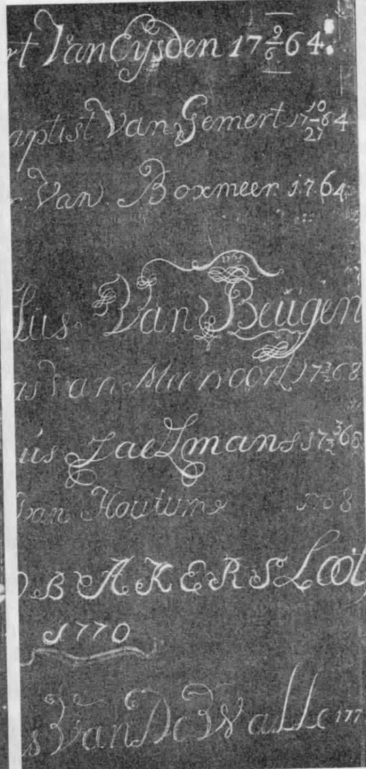 rt Van Eysden 17 2/6 64
aptist Van Gemert 17 10/21 64
r Van Boxmeer 1764
lus Van Beügen
as Van 1768
üs Zaelmans 17 3/2 68
Van Houtum 1768
B AKERS Loot
1770
s Van De Walle 177